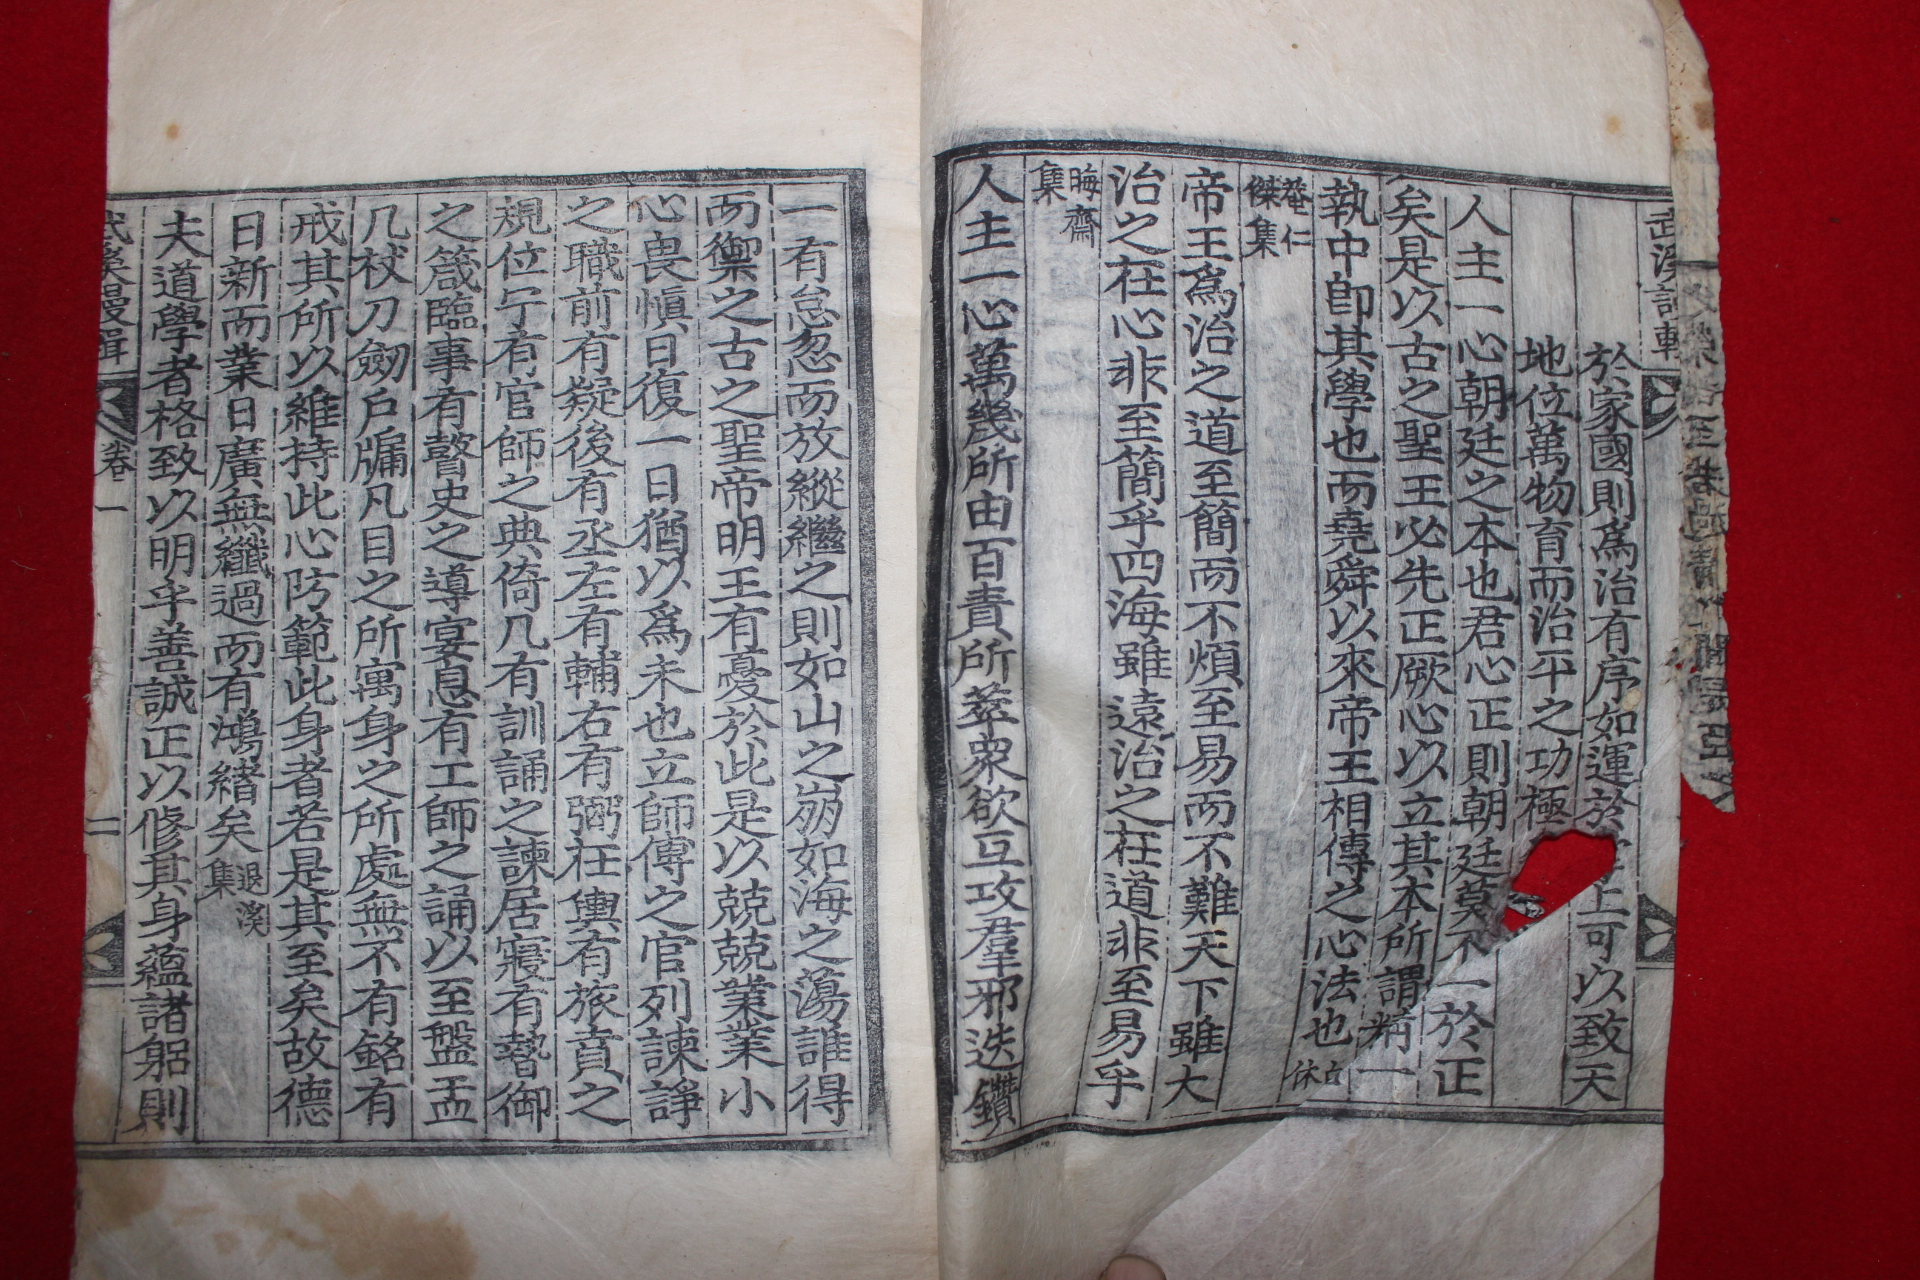 於家國則爲治有序如運於 上可以致天
地位萬物育而治平之功極
人主一心朝廷之本也君心正則朝廷莫不一於正
矣是以古之聖王必先正厥心以立其本所謂精一
執中卽其學也而堯舜以來帝王相傳之心法也 休
菴仁
傑集
帝王爲治之道至簡而不煩至易而不難天下雖大
治之在心非至簡乎四海雖遠治之在道非至易乎
晦齋
集
人主一心萬幾所由百責所萃衆欲互攻羣邪迭鑽
一有怠忽而放縱繼之則如山之崩如海之蕩誰得
而禦之古之聖帝明王有憂於此是以兢兢業業小
心畏愼日復一日猶以爲未也立師傅之官列諫諍
之職前有疑後有丞左有輔右有弼在輿有旅賁之
規位宁有官師之典倚几有訓誦之諫居寢有暬御
之箴臨事有瞽史之導宴息有工師之誦以至盤盂
几杖刀劒戶牖凡目之所寓身之所處無不有銘有
戒其所以維持此心防範此身者若是其至矣故德
日新而業日廣無纖過而有鴻緖矣 退溪
集
夫道學者格致以明乎善誠正以修其身蘊諸躬則
卷一
二